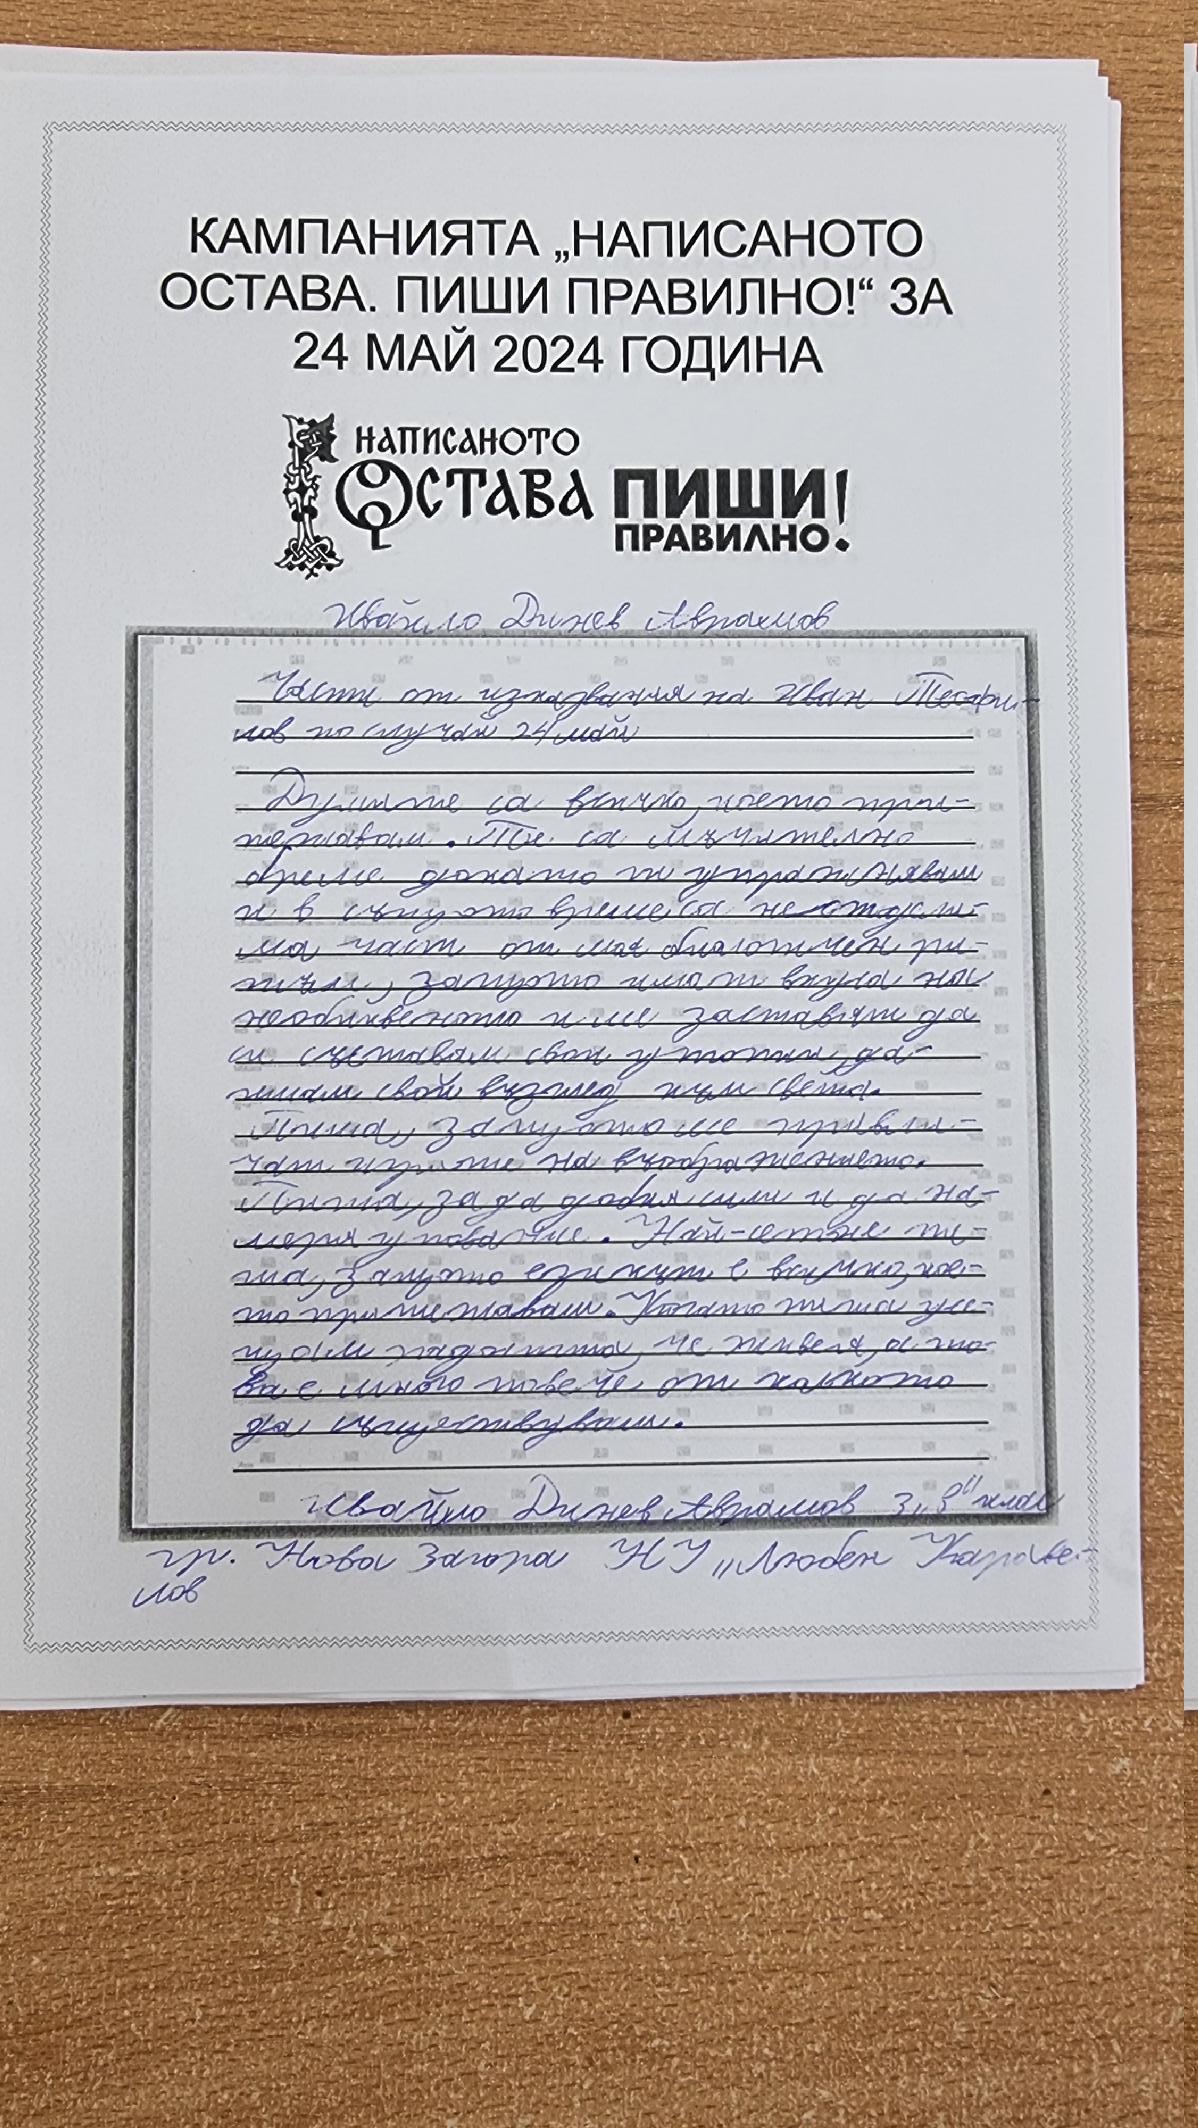 КАМПАНИЯТА „НАПИСАНОТО
ОСТАВА. ПИШИ ПРАВИЛНО!“ ЗА
24 МАЙ 2024 ГОДИНА
НАПИСАНОТО
ОСТАВА ПИШИ!
ПРАВИЛНО
Ивайло Динев Аврамов
Части от изказвания на Иван Теофи-
лов по случай 24 май
Думите са всичко, което при-
тежавам. Те са мъчително
бреме докато ги упражнявам
и в същото време са неотдели-
ма част от моя биологичен ри-
тъм, защото имат вкуса на
необикновеното и ме заставят да
си съставям свои утопии, да
имам свой възглед към света.
Пиша, защото ме привли-
чат игрите на въображението.
Пиша, за да добия сили и да на-
меря упование. Най-сетне пи-
ша, защото езикът е всичко, кое-
то притежавам. Когато пиша усе-
щам радостта, че живея, а то-
ва е много повече от колкото
да съществувам.
Ивайло Динев Аврамов 3 „в“ клас
гр. Нова Загора НУ „Любен Караве-
лов